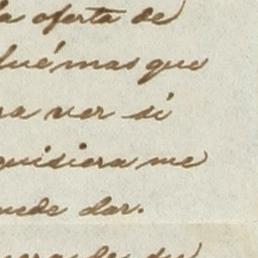 la oferta de
fué mas que
ra ver si
quisiera me
uede dar.
de su